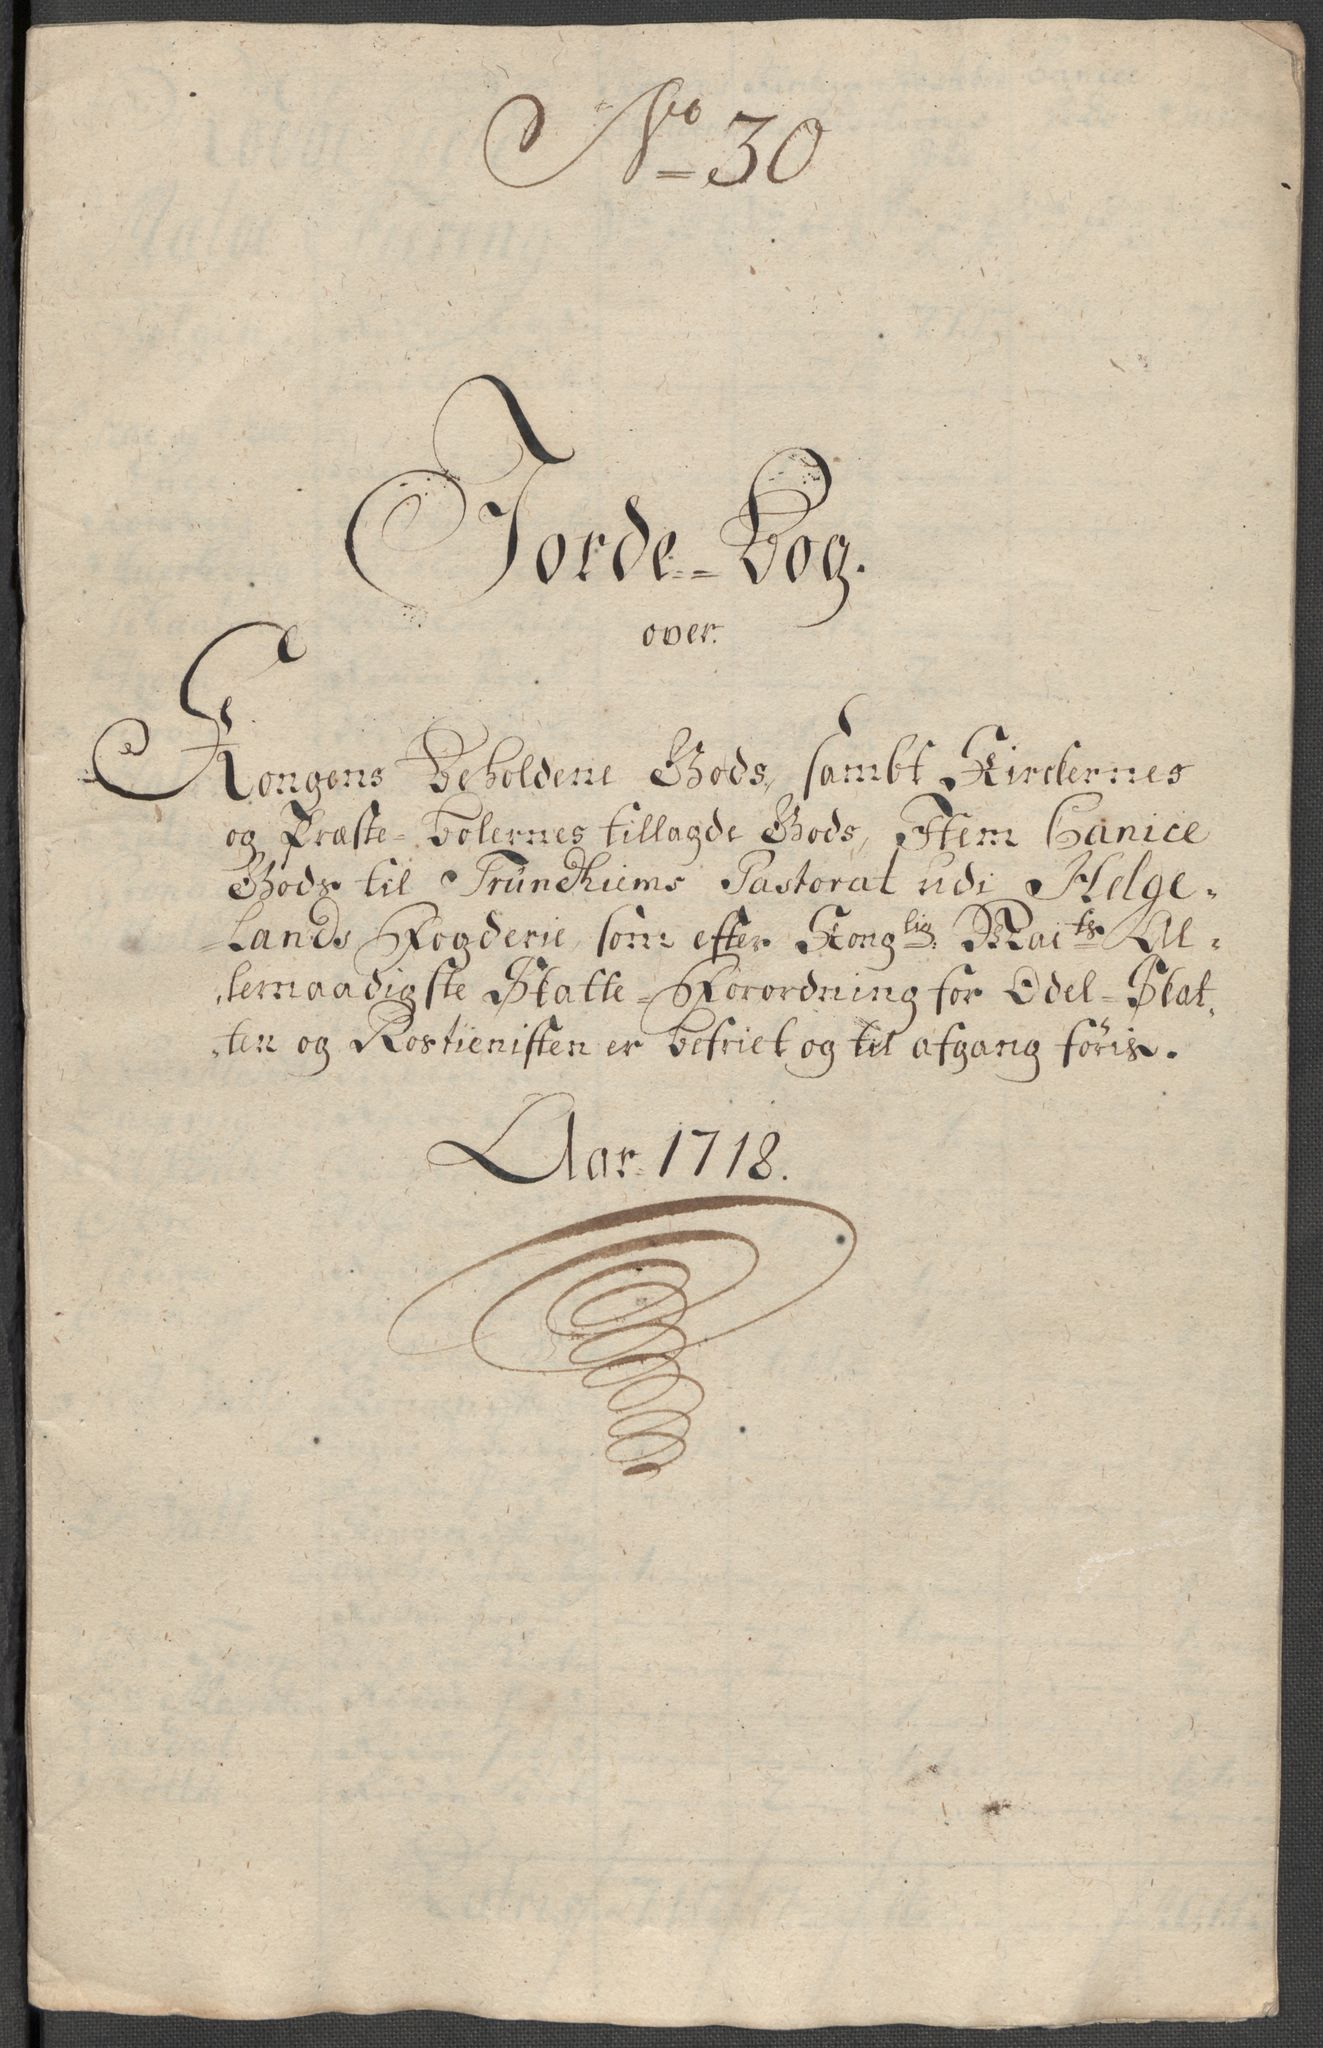 No 30
Jorde-Bog.
over
Kongens Beholdene Gods, sambt Kirckernes
og Præste-bolernes tillagde Gods, Item Canice
Gods til Trundhiems Pastorat udi Helge-
lands Fogderie, som efter Konglig Mai:ts Al-
lernaadigste Skatte-Forordning for Odel-Skat-
ten og Rostienisten er befriet og til afgang föris.
Aar 1718.